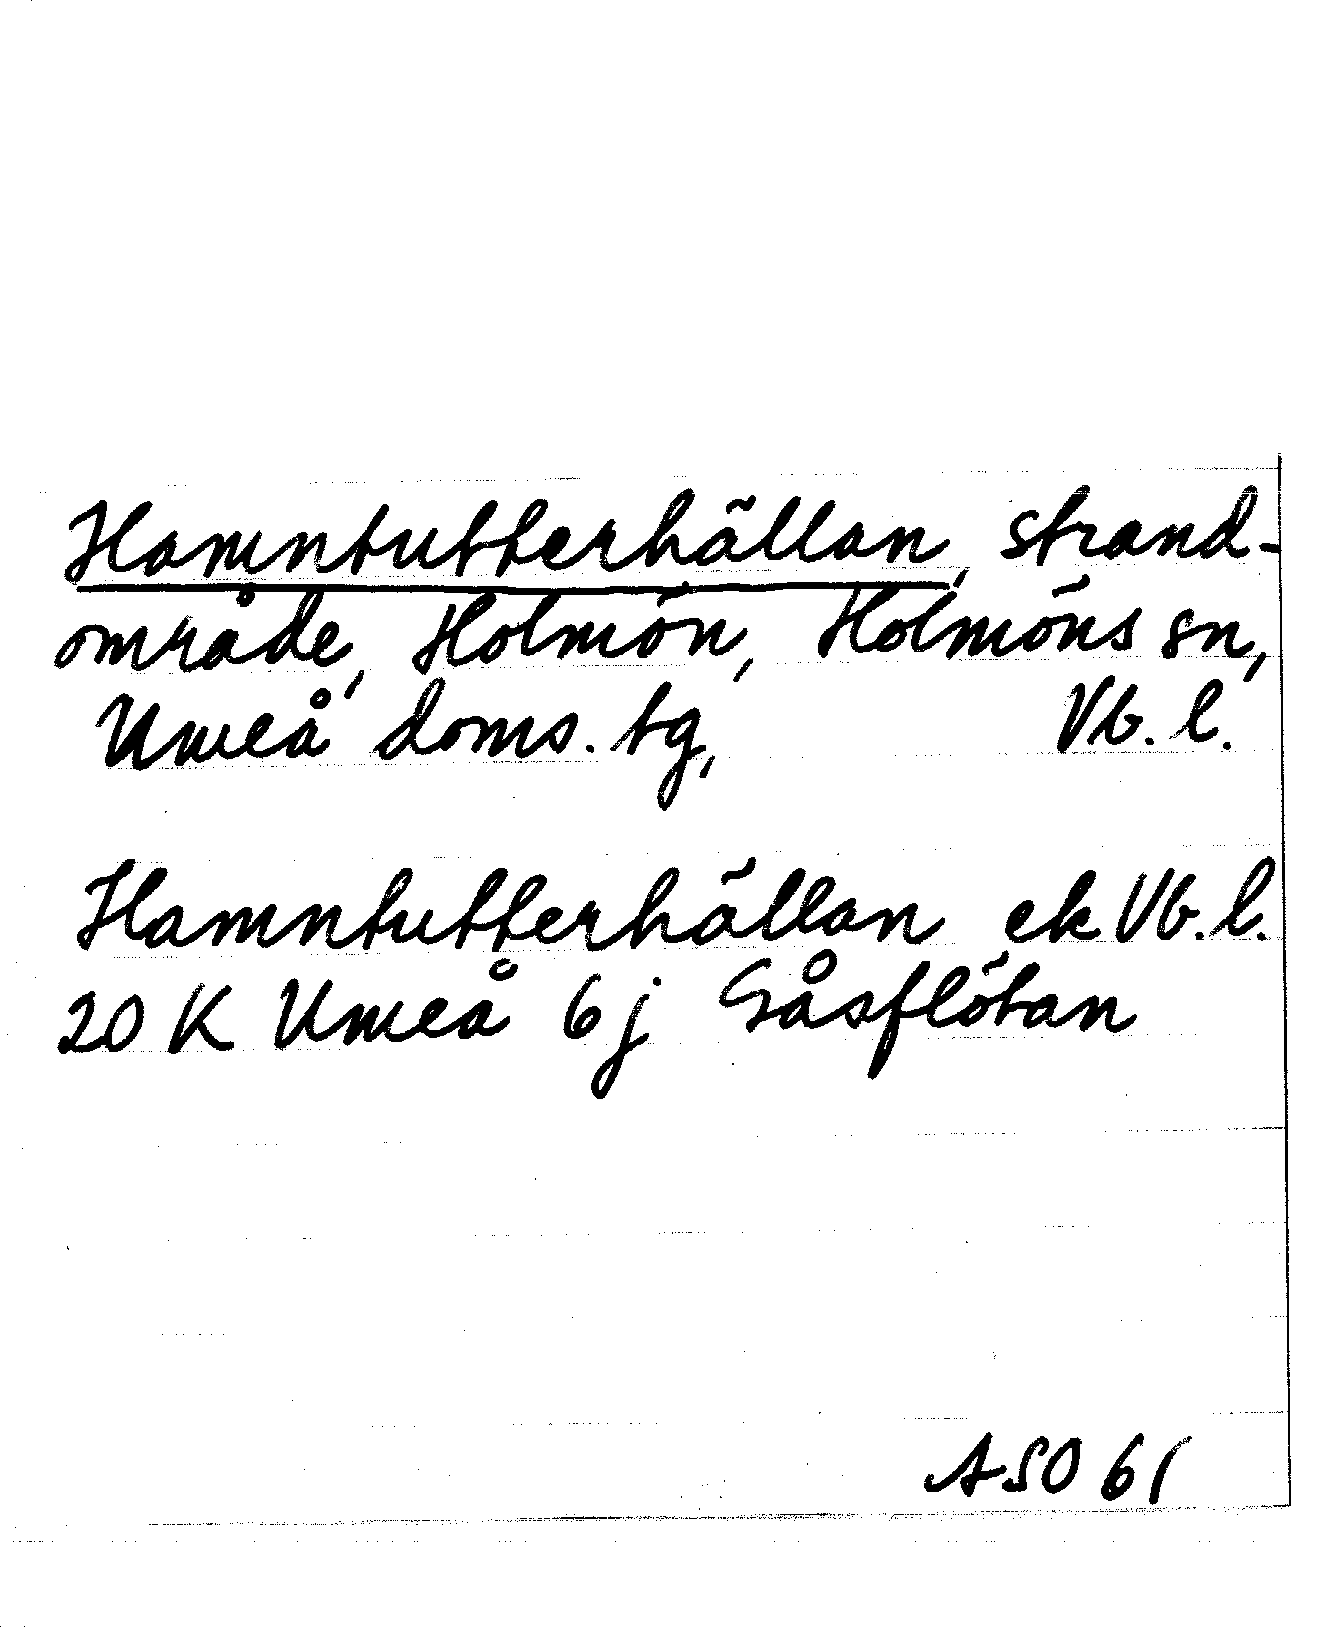 Hamntutterhällan, strand-
område, Holmön, Holmöns sn,
Umeå doms. tg, Vb. l.
Hamntutterhällan ek Vb. l.
20 K Umeå 6 j Gåsflötan
ASO 61